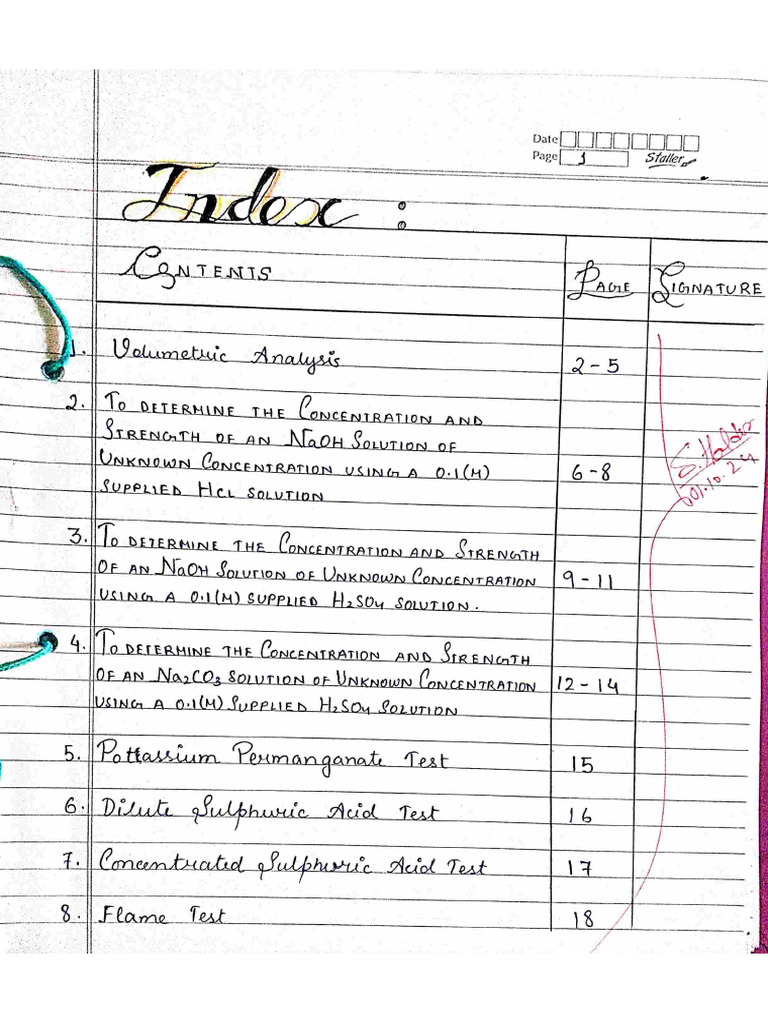 Date
Page 1 Staller
Index :
CONTENTS PAGE SIGNATURE
1. Volumetric Analysis 2-5
2. TO DETERMINE THE CONCENTRATION AND
STRENGTH OF AN NaOH SOLUTION OF
UNKNOWN CONCENTRATION USING A 0.1(M) 6-8
SUPPLIED HCL SOLUTION
3. TO DETERMINE THE CONCENTRATION AND STRENGTH
OF AN NaOH SOLUTION OF UNKNOWN CONCENTRATION 9-11
USING A 0.1(M) SUPPLIED H2SO4 SOLUTION.
4. TO DETERMINE THE CONCENTRATION AND STRENGTH
OF AN Na2CO3 SOLUTION OF UNKNOWN CONCENTRATION 12-14
USING A 0.1(M) SUPPLIED H2SO4 SOLUTION
5. Pottassium Permanganate Test 15
6. Dilute Sulphuric Acid Test 16
7. Concentrated Sulphuric Acid Test 17
8. Flame Test 18